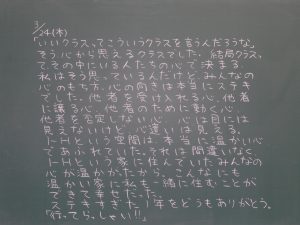 3/24(木)
「いいクラスってこういうクラスを言うんだろうな」
そう心から思えるクラスでした。結局クラスっ
て、その中にいる人たちの心で決まる。
私はそう思っているんだけど、みんなの
心のもち方、心の向きは本当にステキ
でした。他者を受け入れる心、他者
に譲る心、他者のために動く心、
他者を否定しない心… 心は目には
見えないけど、心遣いは見える。
1-Hという空間は、本当に温かい心
であふれていた。それは間違いなく
1-Hという家に住んでいたみんなの
心が温かかったから。こんなにも
温かい家に私も一緒に住むことが
できて幸せだった。
ステキすぎた1年をどうもありがとう。
「行ってらっしゃい!!」